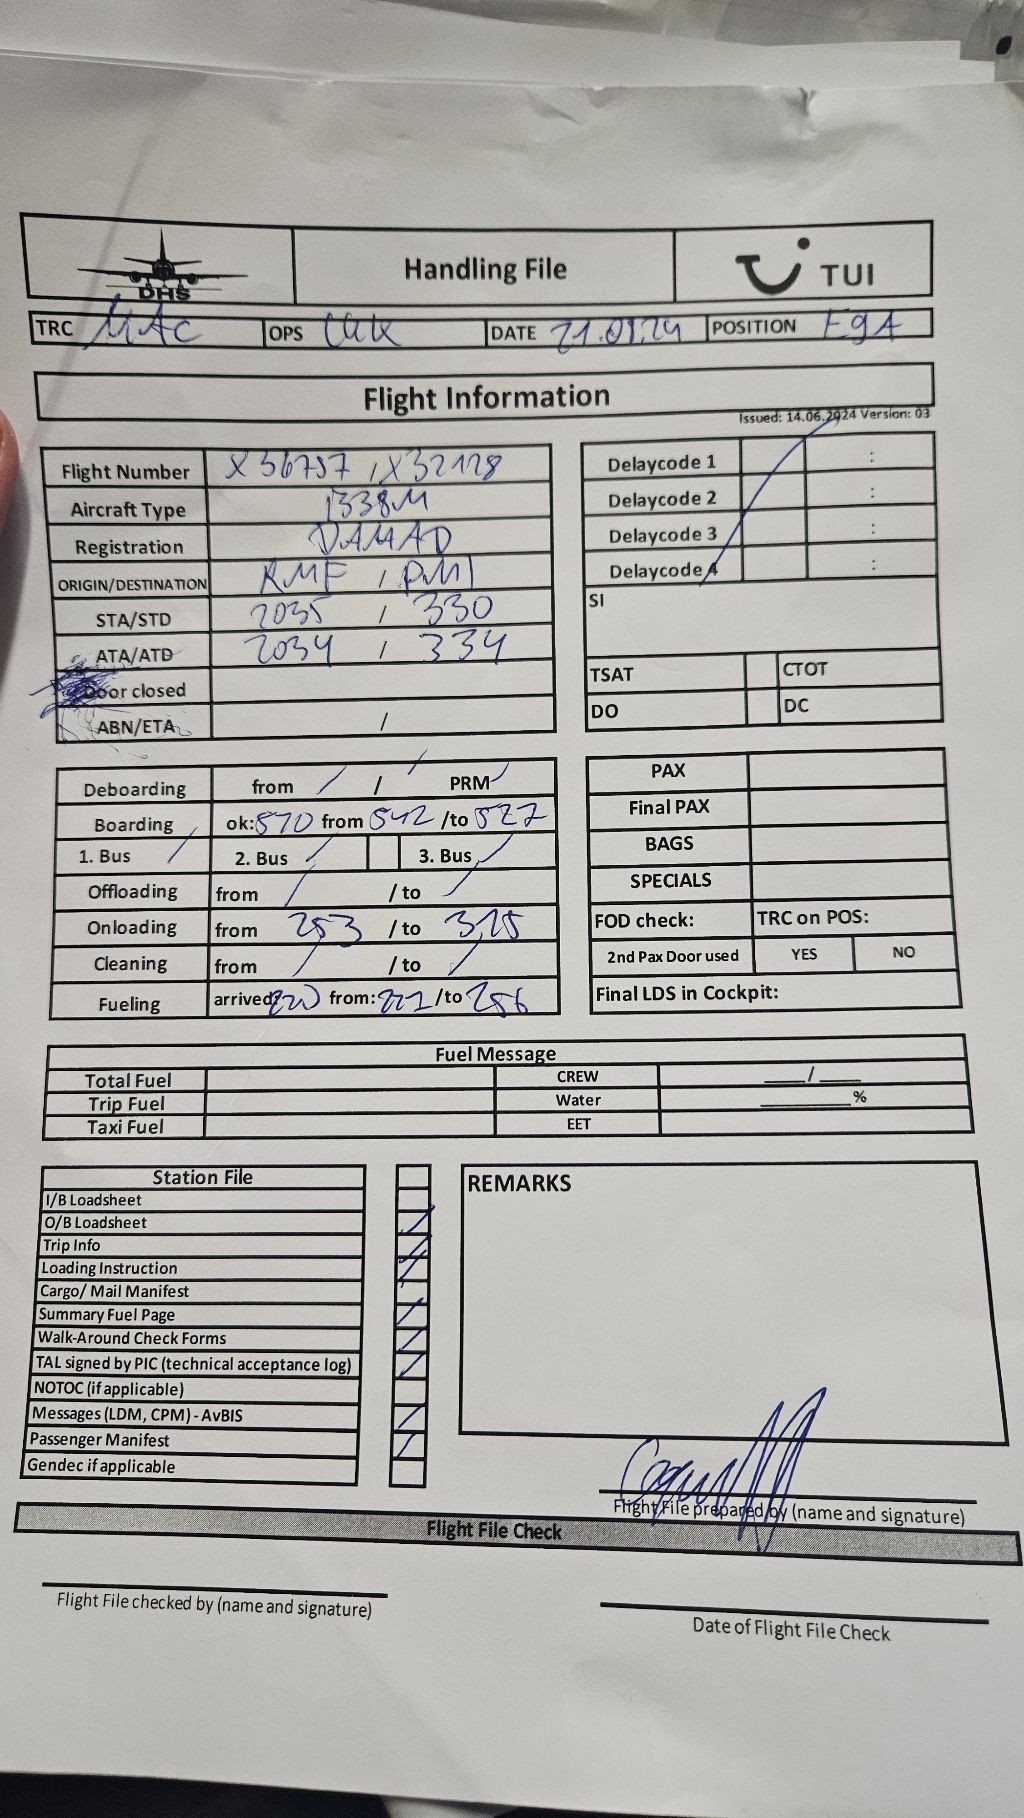 DHS
Handling File
TUI
TRC MAC OPS DATE 21.08.24 POSITION E9A
Flight Information
Issued: 14.06.2924 Version: 03
Flight Number X36757 / X32128
Aircraft Type
Registration DAMAD
ORIGIN/DESTINATION RMF / PMI
STA/STD 2035 / 330
ATA/ATD 2034 / 334
Door closed
ABN/ETA /
Delaycode 1 :
Delaycode 2 :
Delaycode 3 :
Delaycode 4 :
SI
TSAT CTOT
DO DC
Deboarding from / PRM
Boarding ok: 510 from 512 /to 527
1. Bus 2. Bus 3. Bus
Offloading from / to
Onloading from 253 / to 3,15
Cleaning from / to
Fueling arrived: 220 from: 221 /to 256
PAX
Final PAX
BAGS
SPECIALS
FOD check: TRC on POS:
2nd Pax Door used YES NO
Final LDS in Cockpit:
Fuel Message
Total Fuel CREW ___/___
Trip Fuel Water ______%
Taxi Fuel EET
Station File
I/B Loadsheet
O/B Loadsheet
Trip Info
Loading Instruction
Cargo/ Mail Manifest
Summary Fuel Page
Walk-Around Check Forms
TAL signed by PIC (technical acceptance log)
NOTOC (if applicable)
Messages (LDM, CPM) - AvBIS
Passenger Manifest
Gendec if applicable
REMARKS
Flight File prepared by (name and signature)
Flight File Check
Flight File checked by (name and signature)
Date of Flight File Check